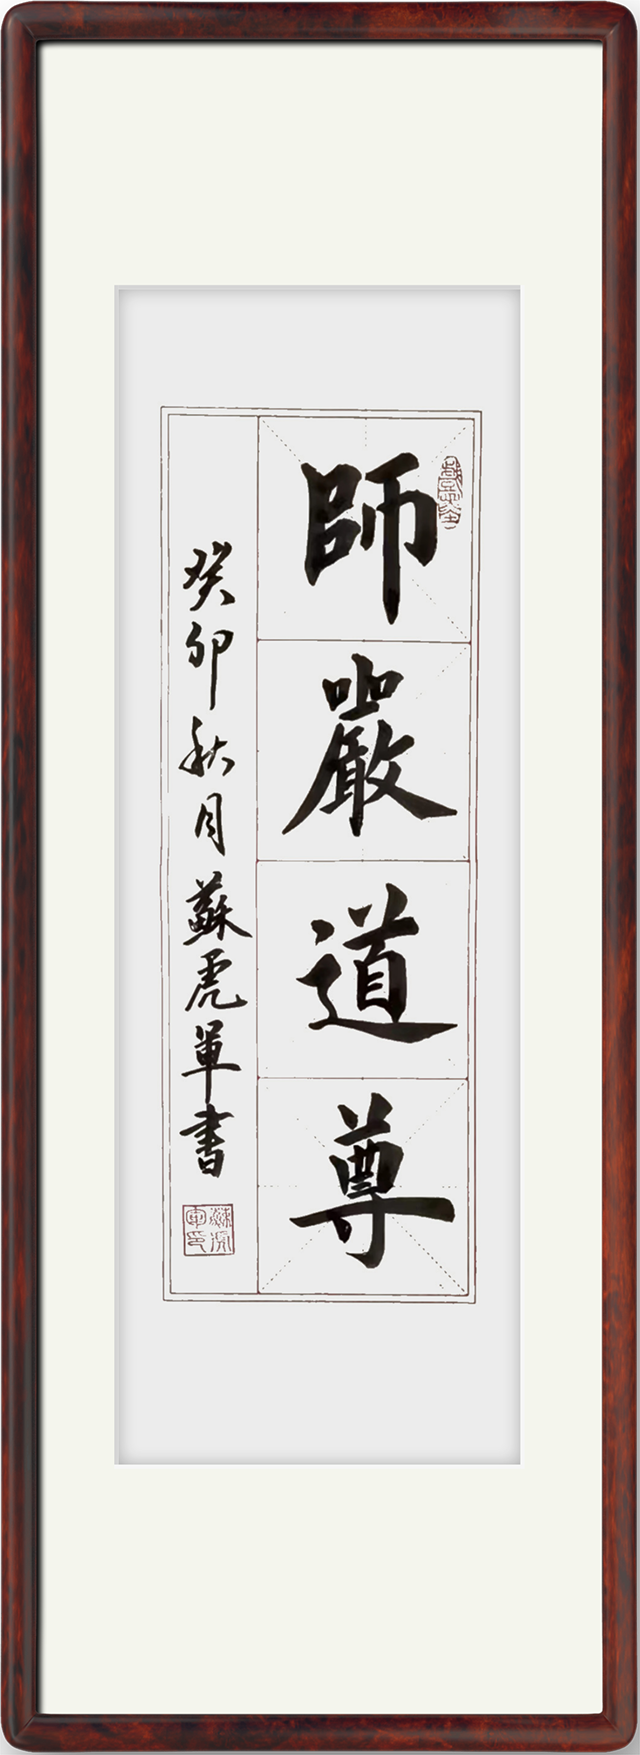 師嚴道尊
癸卯秋月蘇虎軍書